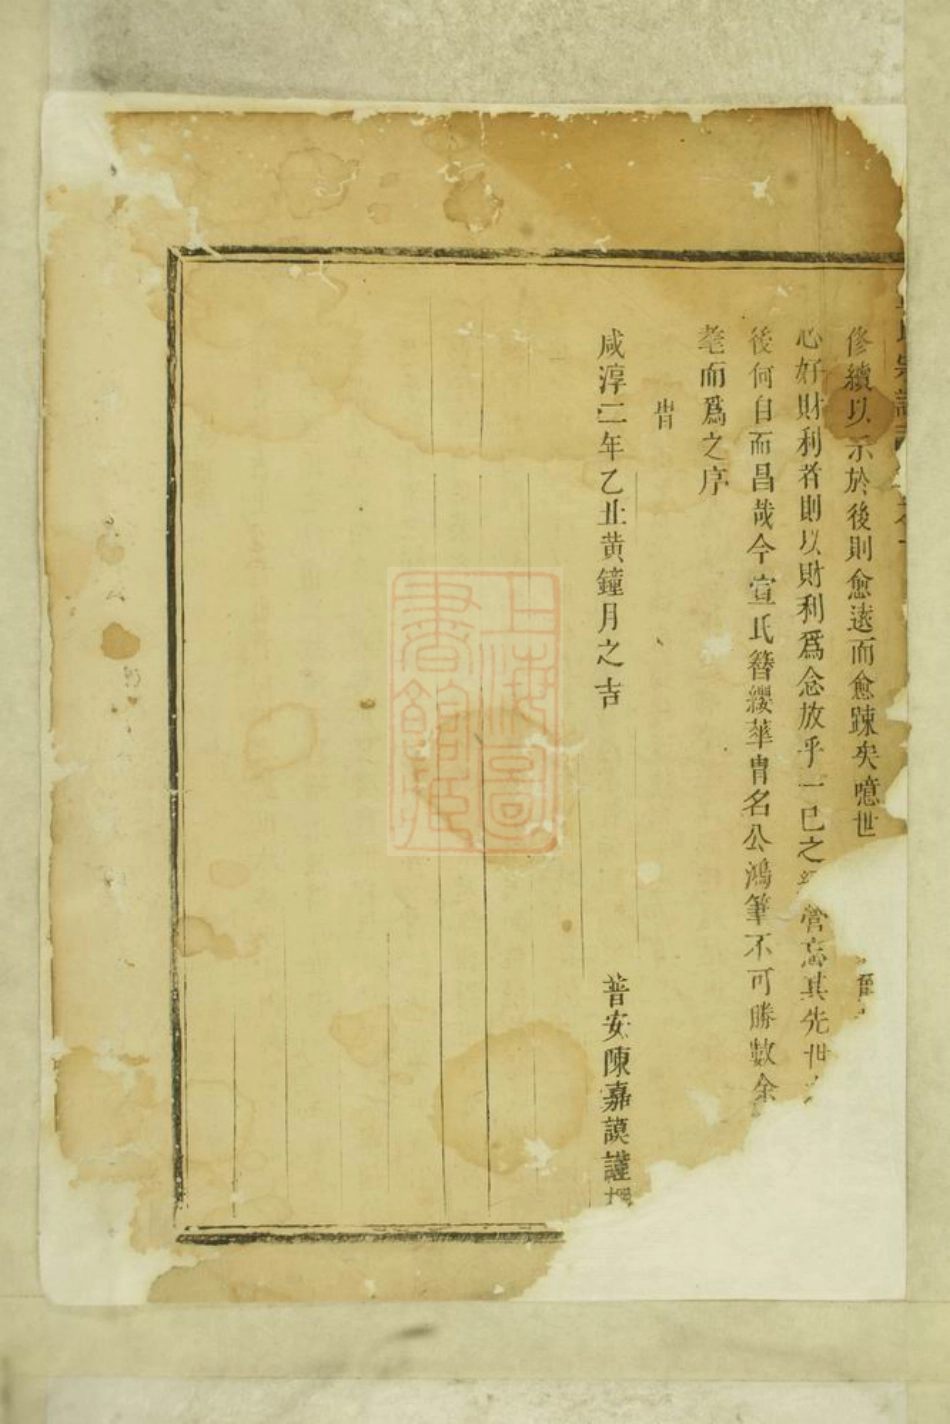 氏宗譜
修續以示於後則愈遠而愈踈矣噫世
心好財利者則以財利爲念放乎一已之營忘其先世
後何自而昌哉今宣氏簪纓華胄名公鴻筆不可勝數余
耄而爲之序
旹
咸淳二年乙丑黄鐘月之吉
普安陳嘉謨謹
上海圖書館藏